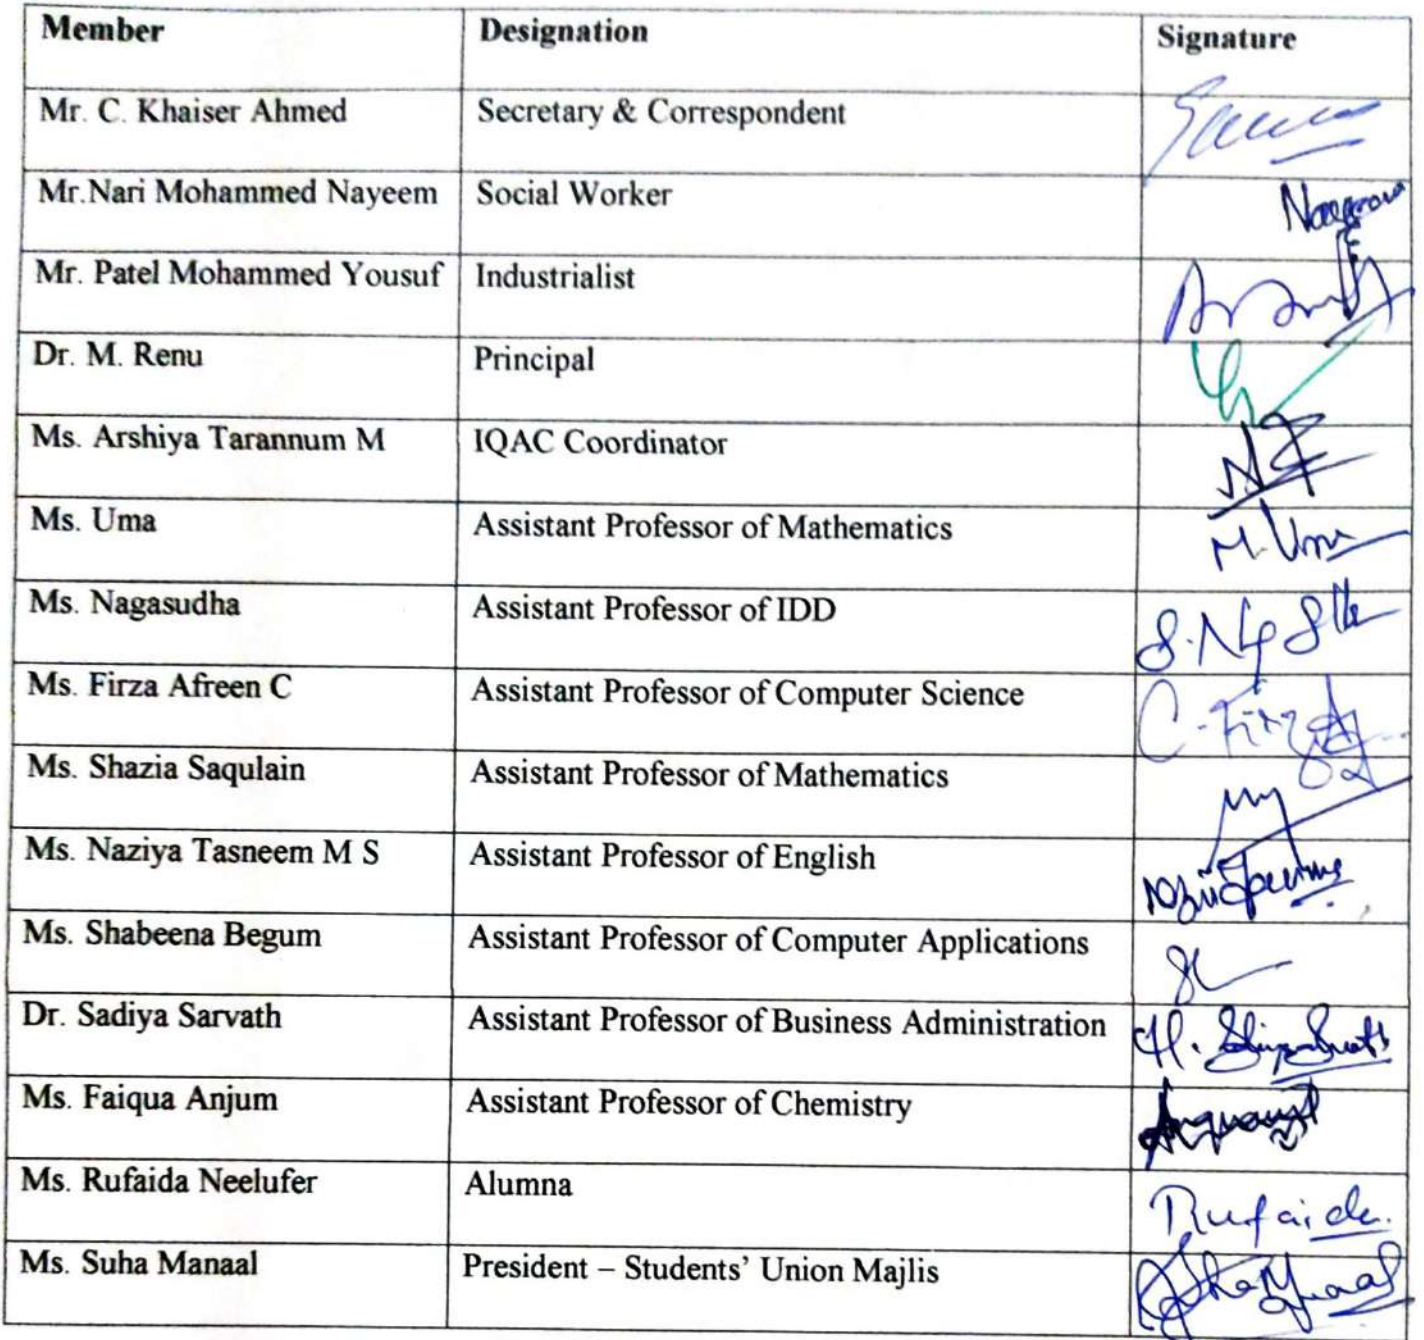 Member Designation Signature
Mr. C. Khaiser Ahmed Secretary & Correspondent
Mr.Nari Mohammed Nayeem Social Worker
Mr. Patel Mohammed Yousuf Industrialist
Dr. M. Renu Principal
Ms. Arshiya Tarannum M IQAC Coordinator
Ms. Uma Assistant Professor of Mathematics M. Uma
Ms. Nagasudha Assistant Professor of IDD
Ms. Firza Afreen C Assistant Professor of Computer Science C. Firza
Ms. Shazia Saqulain Assistant Professor of Mathematics
Ms. Naziya Tasneem M S Assistant Professor of English
Ms. Shabeena Begum Assistant Professor of Computer Applications
Dr. Sadiya Sarvath Assistant Professor of Business Administration
Ms. Faiqua Anjum Assistant Professor of Chemistry
Ms. Rufaida Neelufer Alumna Rufaida.
Ms. Suha Manaal President – Students’ Union Majlis